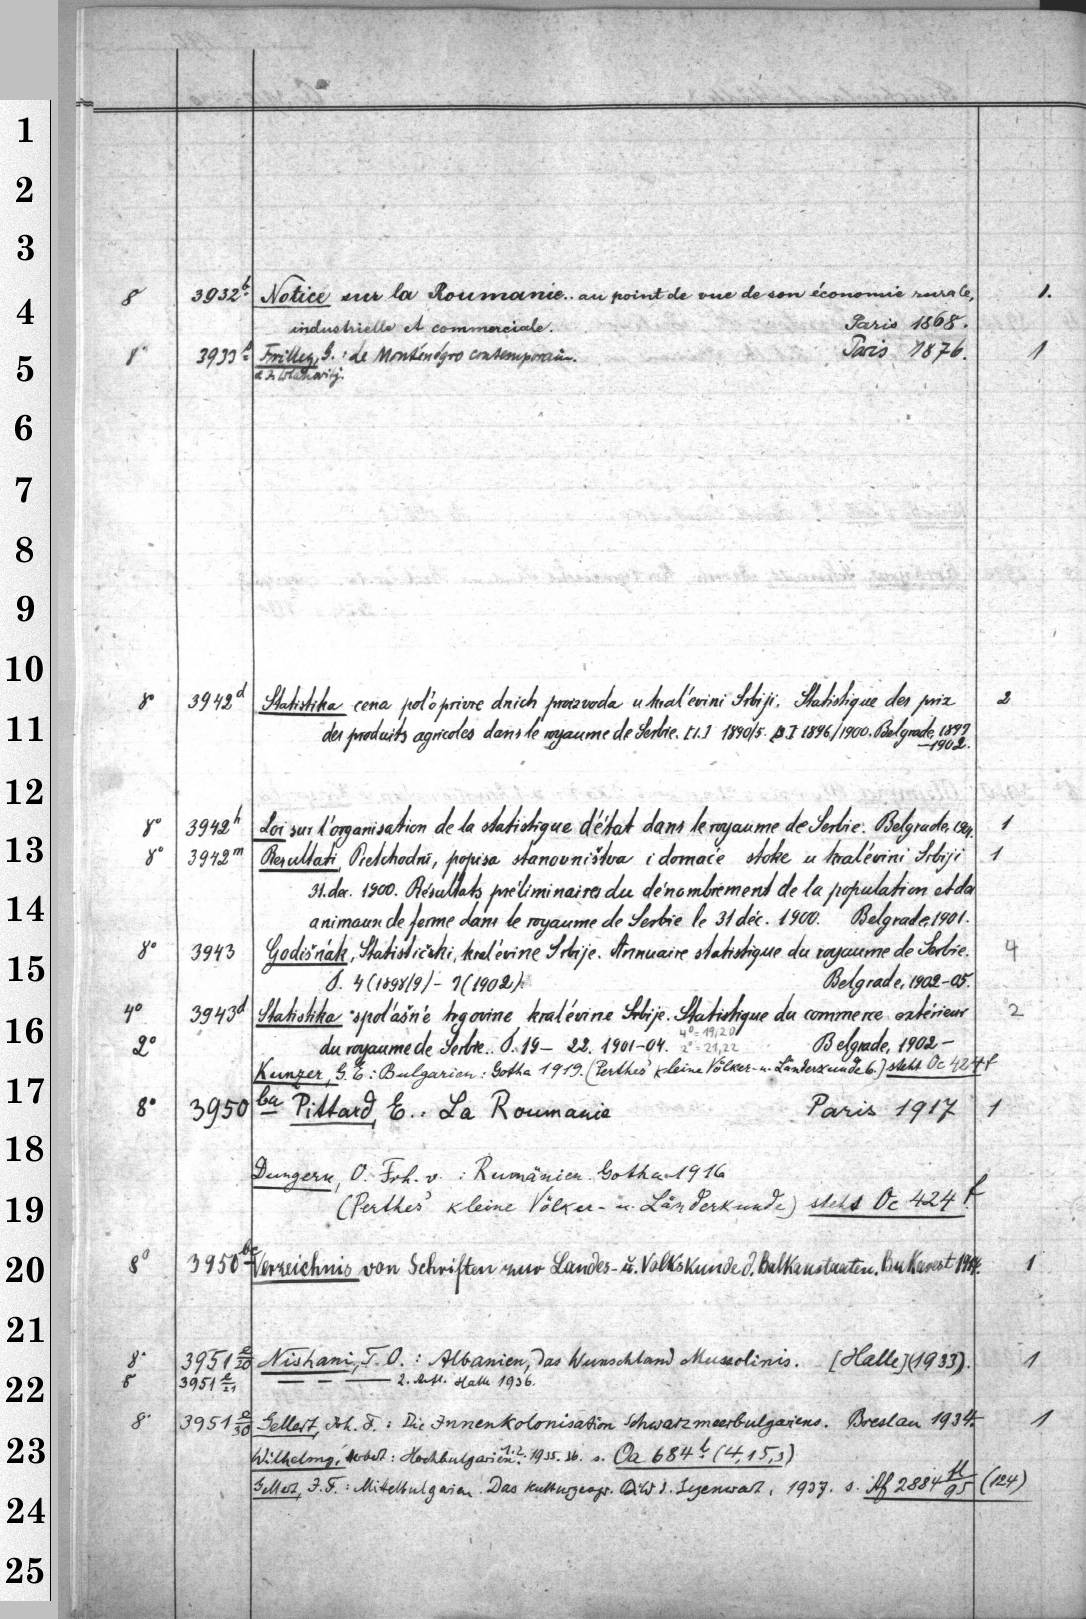 1
2
3
8° 3932 b Notice sur la Roumanie.. au point de vue de son économie rurale, 1.
4
industrielle et commerciale. Paris 1868.
5
8° 3933 Frilley, G.: le Monténégro contemporain. Paris 1876. 1
& J. Wlahovitj.
6
7
8
9
10
8° 3942 d Statistika cena pol'oprivre dnich proizvoda u kral'evini Srbiji. Statistique des prix 2
11
des produits agricoles dans le royaume de Serbie. [1.] 1890/5. 1896/1900. Belgrade, 1899
—1902.
12
8° 3942 h Loi sur l'organisation de la statistique d'état dans le royaume de Serbie. Belgrade, 1
13
8° 3942 m Resultati Prethodni, popisa stanovništva i domaće stoke u kral'evini Srbiji 1
31. dec. 1900. Résultats préliminaires du dénombrement de la population et des
14
animaux de ferme dans le royaume de Serbie le 31 déc. 1900. Belgrade, 1901.
8° 3943 Godišńak, Statistički, kral'evine Srbije. Annuaire statistique du royaume de Serbie. 4
15
4 (1898/9) – 7 (1902). Belgrade, 1902–05.
4° 3943 d Statistika spol'ašńe trgovine kral'evine Srbije. Statistique du commerce extérieur 2
16
4° = 19, 20
2° du royaume de Serbie. 19 – 22. 1901–04. 2° = 21, 22 Belgrade, 1902 –
Kunzer, G. E.: Bulgarien: Gotha 1919. (Perthes' kleine Völker- u. Länderkunde 6.) steht Oc 424 f
17
8° 3950 ba Pittard, E.: La Roumanie Paris 1917 1
18
Dungern, O. Frh. v.: Rumänien. Gotha 1916
19
(Perthes' kleine Völker- u. Länderkunde) steht Oc 424 f.
20
8° 3950 Verzeichnis von Schriften zur Landes- u. Volkskunde d. Balkanstaaten. Bukarest 1
21
8° 3951 e/20 Nishani, T. O.: Albanien, das Wunschland Mussolinis. [Halle] (1933). 1
22
8° 3951 e/21 — — — 2. Aufl. Halle 1936.
8° 3951 e/30 Gellert, Joh. F.: Die Innenkolonisation Schwarzmeerbulgariens. Breslau 1934. 1
23
Wilhelmy, Herbert: Hochbulgarien. 1. 2. 1935. 36. s. Oa 684 (4, 15, 3)
Gellert, J. F.: Mittelbulgarien. Das kulturgeogr. Bild d. Gegenwart, 1937. s. Af 2884 (124)
24
25